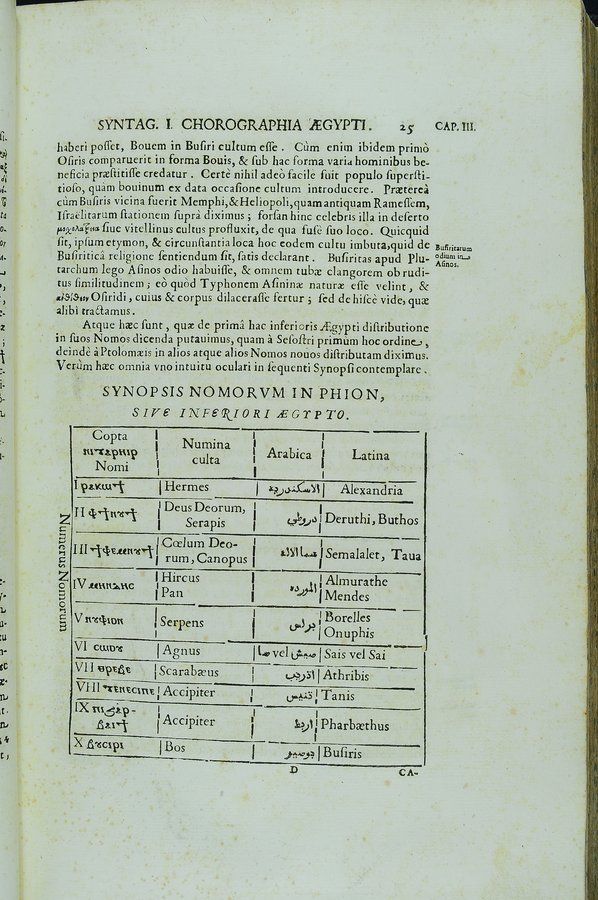 SYNTAG. I. CHOROGRAPHIA ÆGYPTI. 25 CAP. III.
haberi poſſet, Bouem in Buſiri cultum eſſe. Cùm enim ibidem primò
Oſiris comparuerit in forma Bouis, & ſub hac forma varia hominibus be-
neficia præſtitiſſe credatur. Certè nihil adeò facile fuit populo ſuperſti-
tioſo, quàm bouinum ex data occaſione cultum introducere. Prætereà
cùm Buſiris vicina fuerit Memphi, & Heliopoli, quam antiquam Rameſſem,
Iſraelitarum ſtationem ſuprà diximus; forſan hinc celebris illa in deſerto
ſiue vitellinus cultus profluxit, de qua fuſè ſuo loco. Quicquid
ſit, ipſum etymon, & circunſtantia loca hoc eodem cultu imbuta, quid de
Buſiriticâ religione ſentiendum ſit, ſatis declarant. Buſiritas apud Plu-
tarchum lego Aſinos odio habuiſſe, & omnem tubæ clangorem ob rudi-
tus ſimilitudinem; eò quòd Typhonem Aſininæ naturæ eſſe velint, &
Oſiridi, cuius & corpus dilaceraſſe fertur; ſed de hiſce vide, quæ
alibi tractamus.
Buſiritarum
odium in
Aſinos.
Atque hæc ſunt, quæ de primâ hac inferioris Ægypti diſtributione
in ſuos Nomos dicenda putauimus, quam à Seſoſtri primùm hoc ordine,
deindè à Ptolomæis in alios atque alios Nomos nouos diſtributam diximus.
Verùm hæc omnia vno intuitu oculari in ſequenti Synopſi contemplare.
SYNOPSIS NOMORVM IN PHION,
SIVE INFERIORI ÆGYPTO.
Numerus Nomorum
Copta Nomi Numina culta Arabica Latina
I ⲣⲁⲕⲟϯ Hermes الاسكندريه Alexandria
II Deus Deorum, Serapis Deruthi, Buthos
III Cœlum Deo-
rum, Canopus Semalalet, Taua
IV Hircus
Pan Almurathe
Mendes
V Serpens برلس Borelles
Onuphis
VI Agnus صا vel Sais vel Sai
VII Scarabæus Athribis
VIII Accipiter تنيس Tanis
IX Accipiter Pharbæthus
X Bos بوصير Buſiris
D CA-